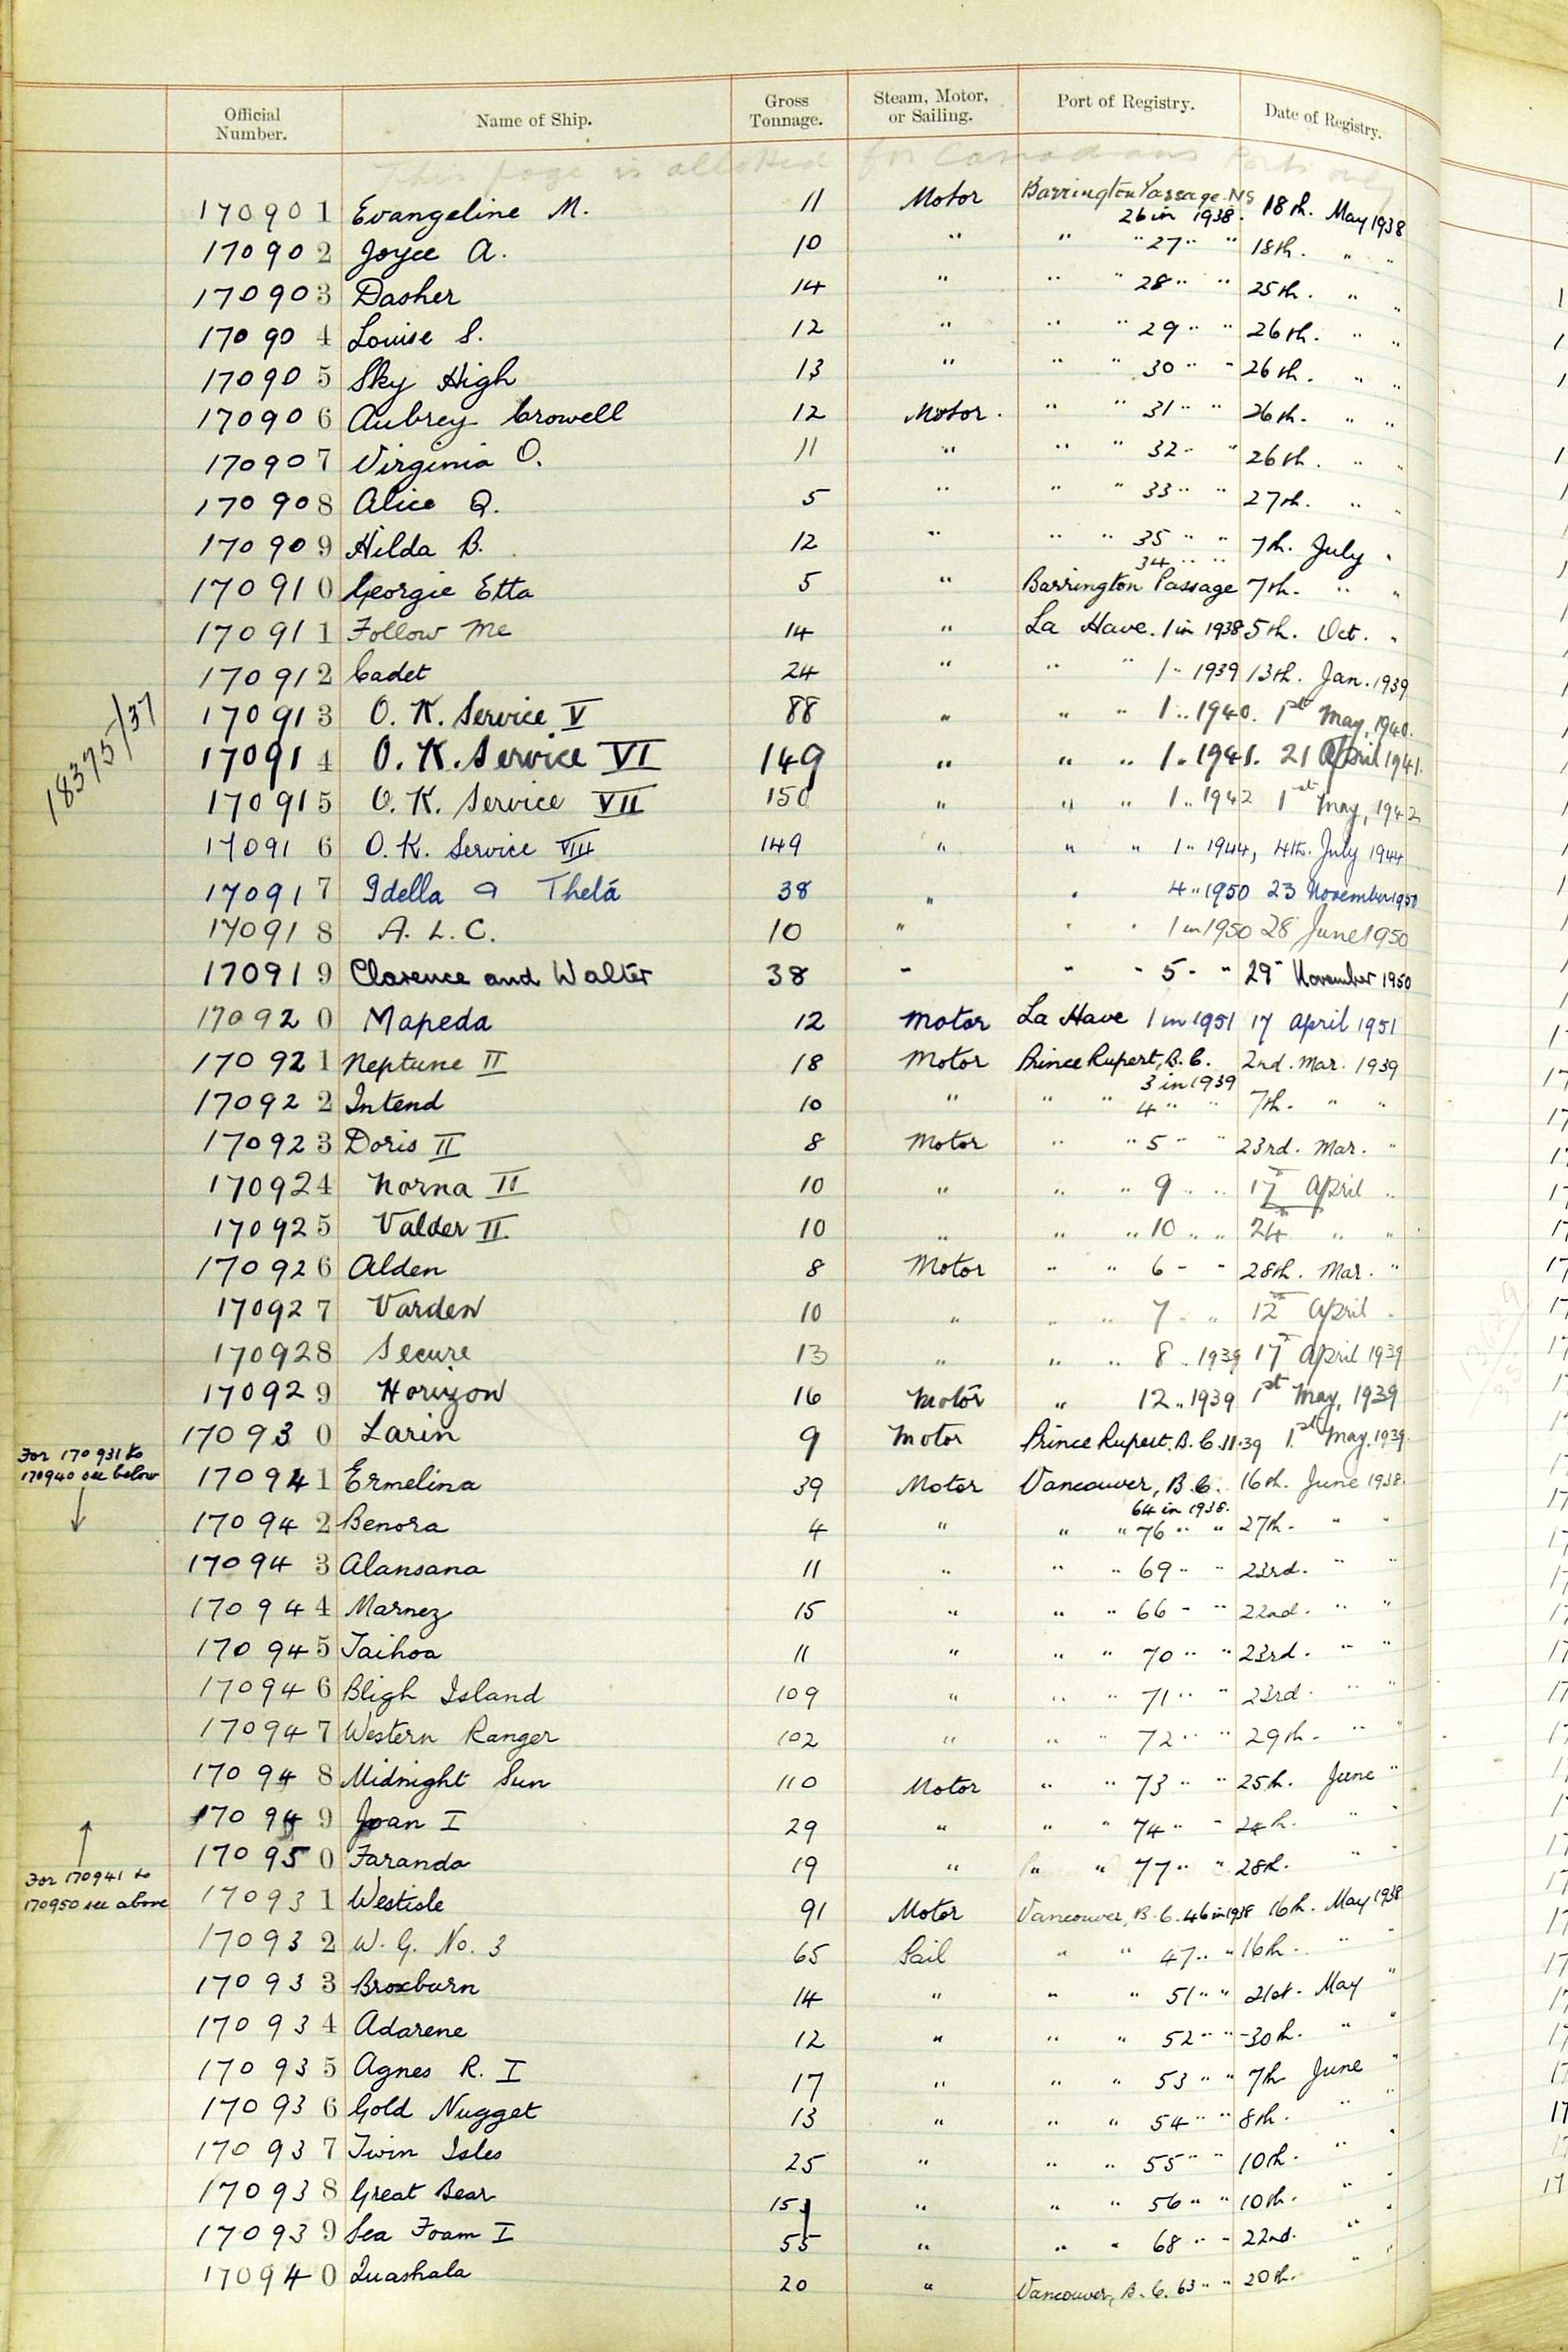 Official Number. Name of Ship. Gross Tonnage. Steam, Motor, or Sailing. Port of Registry. Date of Registry.
This page is allotted for Canadians Ports only
170901 Evangeline M. 11 Motor Barrington Passage NS 26 in 1938. 18th. May 1938
170902 Joyce A. 10 " " " 27 " " 18th. " "
170903 Dasher 14 " " " 28 " " 25th. " "
170904 Louise S. 12 " " " 29 " " 26th. " "
170905 Sky High 13 " " " 30 " " 26th. " "
170906 Aubrey Crowell 12 Motor. " " 31 " " 26th. " "
170907 Virginia O. 11 " " " 32 " " 26th. " "
170908 Alice Q. 5 " " " 33 " " 27th. " "
170909 Hilda B. 12 " " " 35 " " 7th. July "
170910 Georgie Etta 5 " Barrington Passage 34 " " 7th. " "
170911 Follow Me 14 " La Have. 1 in 1938 5th. Oct. "
170912 Cadet 24 " " " 1 " 1939 13th. Jan. 1939
18375/37
170913 O. K. Service V 88 " " " 1 " 1940. 1st May, 1940.
170914 O. K. Service VI 149 " " " 1 " 1941. 21 April 1941.
170915 O. K. Service VII 150 " " " 1 " 1942 1st May, 1942
170916 O. K. Service VIII 149 " " " 1 " 1944, 4th. July 1944
170917 Idella & Thela 38 " " 4 " 1950 23 November 1950
170918 A. L. C. 10 " " " 1 in 1950 28 June 1950
170919 Clarence and Walter 38 " " " 5 " " 29 November 1950
170920 Mapeda 12 Motor La Have 1 in 1951 17 April 1951
170921 Neptune II 18 Motor Prince Rupert, B. C. 3 in 1939 2nd. Mar. 1939
170922 Intend 10 " " " 4 " " 7th. " "
170923 Doris II 8 Motor " " 5 " " 23rd. Mar. "
170924 Norna II 10 " " " 9 " " 17th April "
170925 Valder II. 10 " " " 10 " " 24th " "
170926 Alden 8 Motor " " 6 " " 28th. Mar. "
170927 Varden 10 " " " 7 " " 12th April "
170928 Secure 13 " " " 8 " 1939 17th April 1939
170929 Horizon 16 Motor " 12 " 1939 1st May, 1939
170930 Larin 9 Motor Prince Rupert, B. C. 11.39 1st May, 1939.
For 170931 to
170940 see below
170941 Ermelina 39 Motor Vancouver, B. C. 64 in 1938. 16th. June 1938.
170942 Benora 4 " " " 76 " " 27th. " "
170943 Alansana 11 " " " 69 " " 23rd. " "
170944 Marnez 15 " " " 66 " " 22nd. " "
170945 Taihoa 11 " " " 70 " " 23rd. " "
170946 Bligh Island 109 " " " 71 " " 23rd. " "
170947 Western Ranger 102 " " " 72 " " 29th. " "
170948 Midnight Sun 110 Motor " " 73 " " 25th. June "
170949 Joan I 29 " " " 74 " " 24th. " "
170950 Faranda 19 " " " 77 " " 28th. " "
For 170941 to
170950 see above
170931 Westisle 91 Motor Vancouver, B. C. 46 in 1938 16th. May 1938
170932 W. G. No. 3 65 Sail " " 47 " " 16th. " "
170933 Broxburn 14 " " " 51 " " 21st. May "
170934 Adarene 12 " " " 52 " " 30th. " "
170935 Agnes R. I 17 " " " 53 " " 7th June "
170936 Gold Nugget 13 " " " 54 " " 8th. " "
170937 Twin Isles 25 " " " 55 " " 10th. " "
170938 Great Bear " " " 56 " " 10th. " "
170939 Sea Foam I 55 " " " 68 " " 22nd. " "
170940 Quashala 20 " Vancouver, B. C. 63 " " 20th. " "